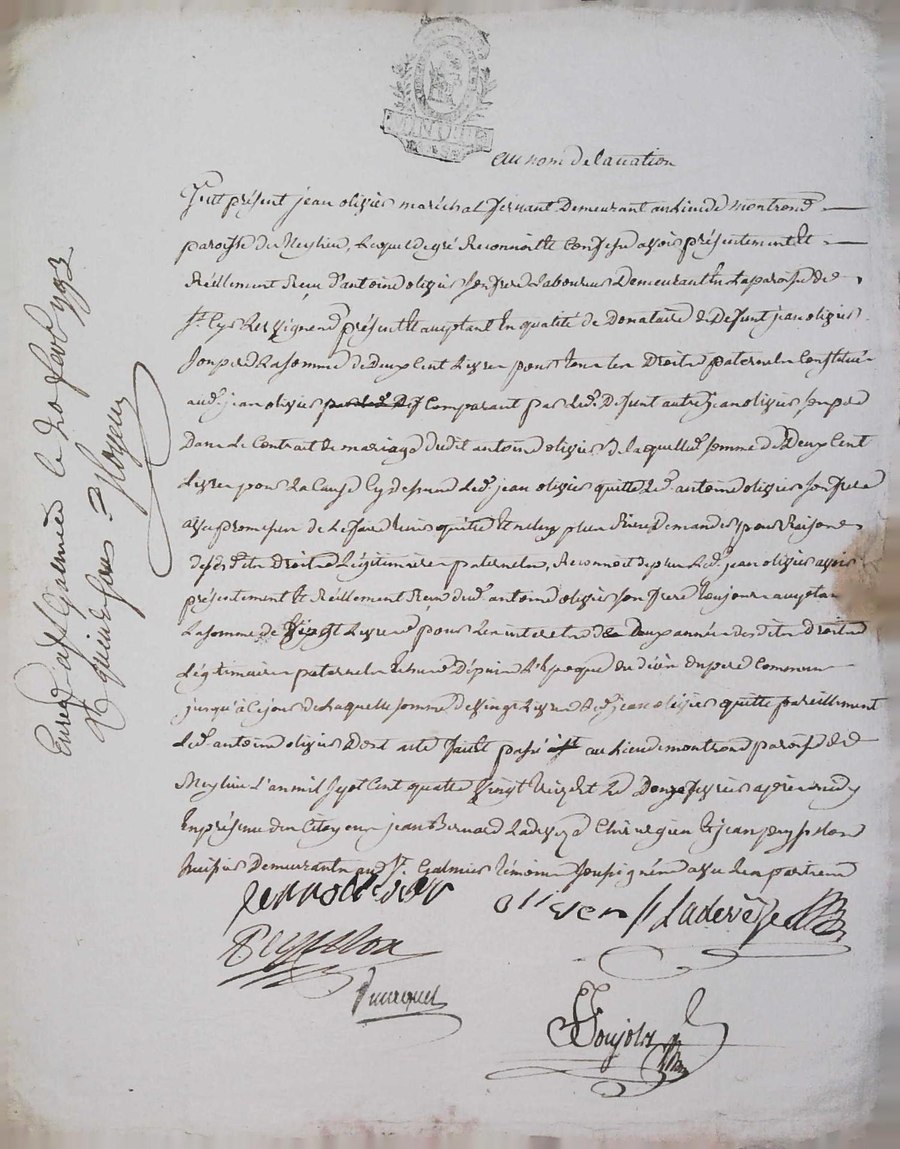 au nom de la nation
fut présent jean olivier maréchal servant Demeurant au lieu de montrond
paroisse de Meylieu, Lequel de gré Reconnoit et Confesse avoir présentement et
Réellement Receu d'antoine olivier son frere Laboureur Demeurant En la paroisse de
St Cyr Les vignes présent et acceptant En qualité de Donataire de Defunt jean olivier
son pere La somme de Deux Cent Livres pour tous les Droits paternels Constitués
aud. jean olivier Comparant par led. Defunt autre jean olivier son pere
Dans Le Contrat de mariage dudit antoine olivier de laquelle somme de Deux Cent
Livres pour La Cause Cy dessus Led. jean olivier quitte Led. antoine olivier son frere
avec promesse de Le faire tenir quitte et ne luy plus Rien Demander pour Raison
desdits Droits Légitimaires paternels, Reconnoit de plus Led. jean olivier avoir
présentement et Réellement Receu dud. antoine olivier son frere toujours acceptant
La somme de vingt Livres pour Les interets de Deux années desdits Droits
Légitimaires paternels Depuis L'Epoque du décès du pere Commun
jusqu'à Ce jour de Laquelle somme de vingt Livres Led. jean olivier quitte pareillement
Led. antoine olivier Dont acte fait et passé au Lieu de montrond paroisse de
Meylieu L'an mil sept Cent quatre vingt treize et Le Douze fevrier après midy
En présence des Citoyens jean Bernard Ladeveze Chirurgien et jean peysselon
huissier Demeurants au St. Galmier témoins soussignés avec Les parties
olivier Ladevèze
Peysselon
Enreg. a St Galmier le 20 fevr 1793
Rx quinze sous